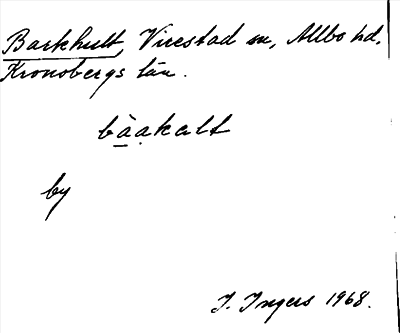 Barkhult, Virestad sn, Allbo hd.
Kronobergs län.
bàakalt
by
I. Ingers 1968.